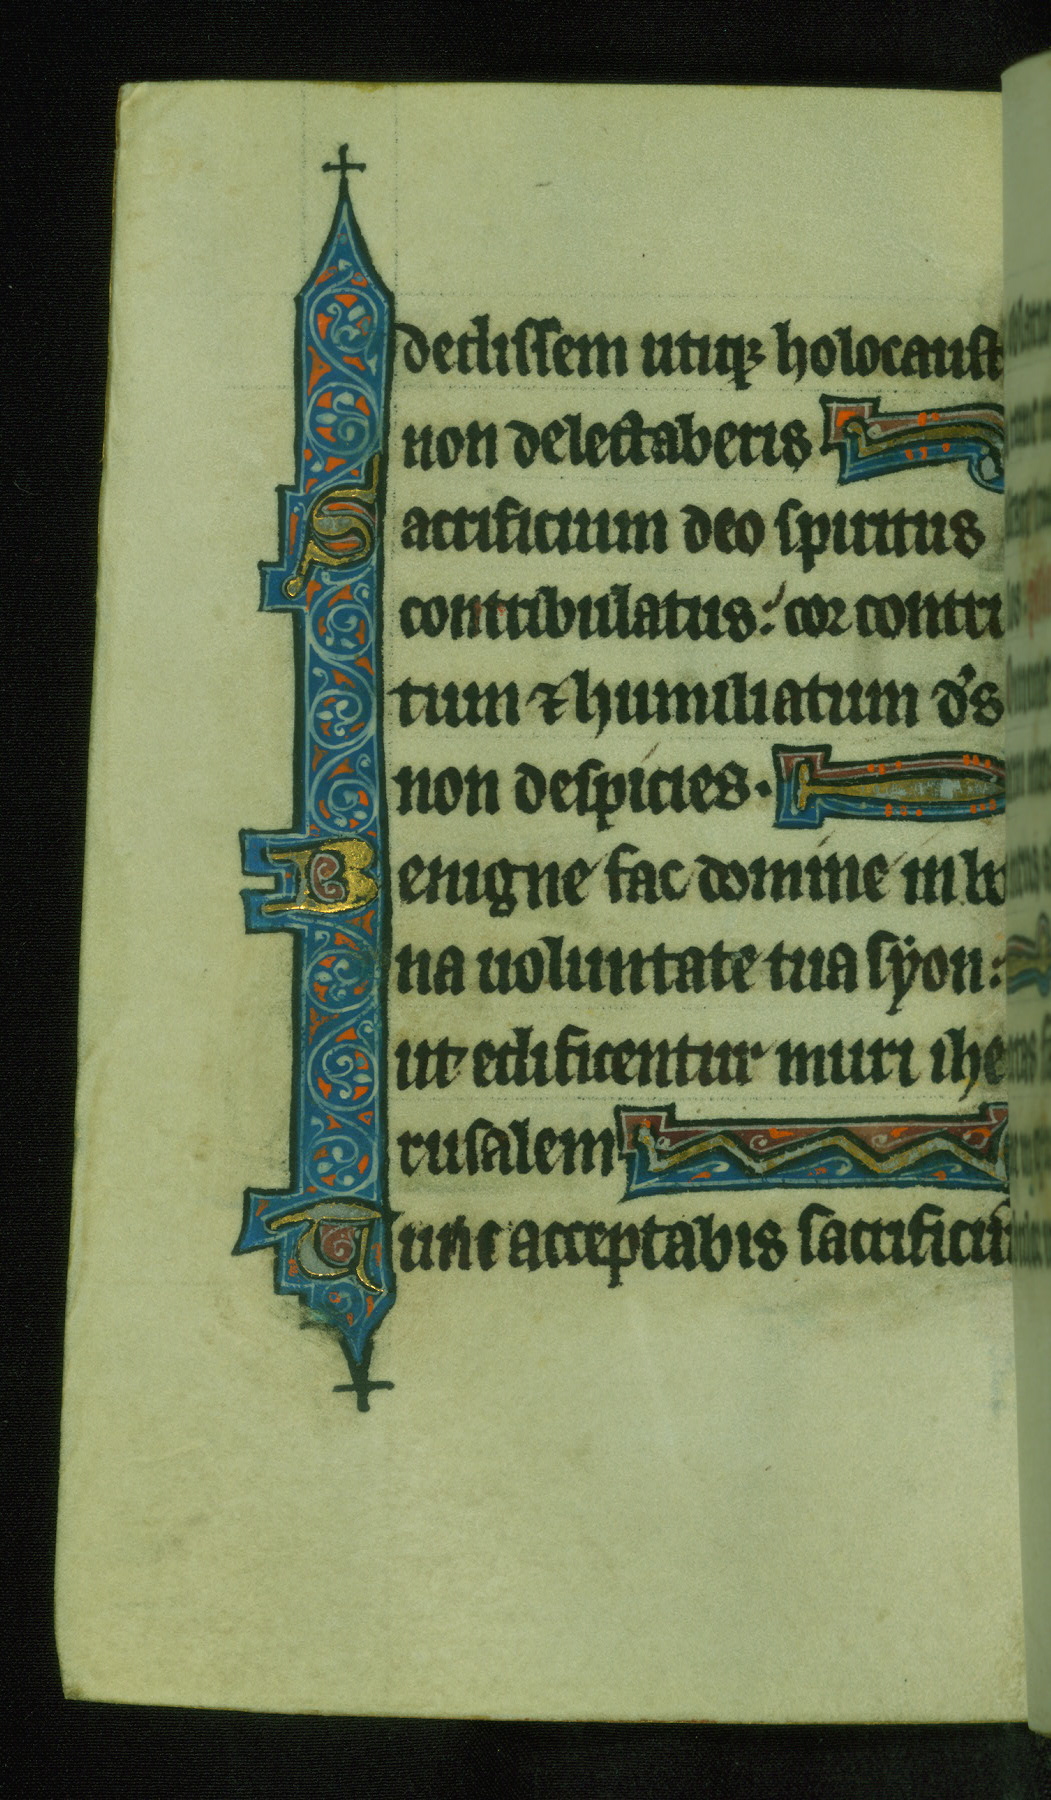 dedissem utiqꝫ holocaust
non delectaberis.
Sacrificium deo spiritus
contribulatus: cor contri
tum ⁊ humiliatum ds̓
non despicies.
Benigne fac domine in bo
na uoluntate tua syon:
ut edificentur muri ihe
rusalem
Tunc acceptabis sacrificiū